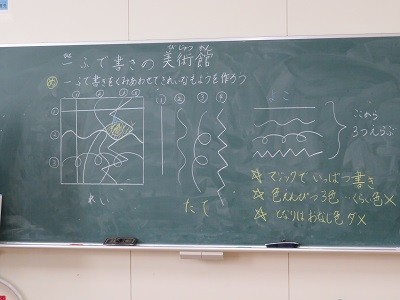 一ふで書きの美術館
びじゅつ かん
め 一ふで書きをくみあわせてきれいなもようを作ろう
① ② ③ ④
れい
① ② ③ ④
たて
よこ
ここから
3つえらぶ
☆ マジックでいっぱつ書き
☆ 色えんぴつ3色 くらい色×
☆ となりはおなじ色ダメ